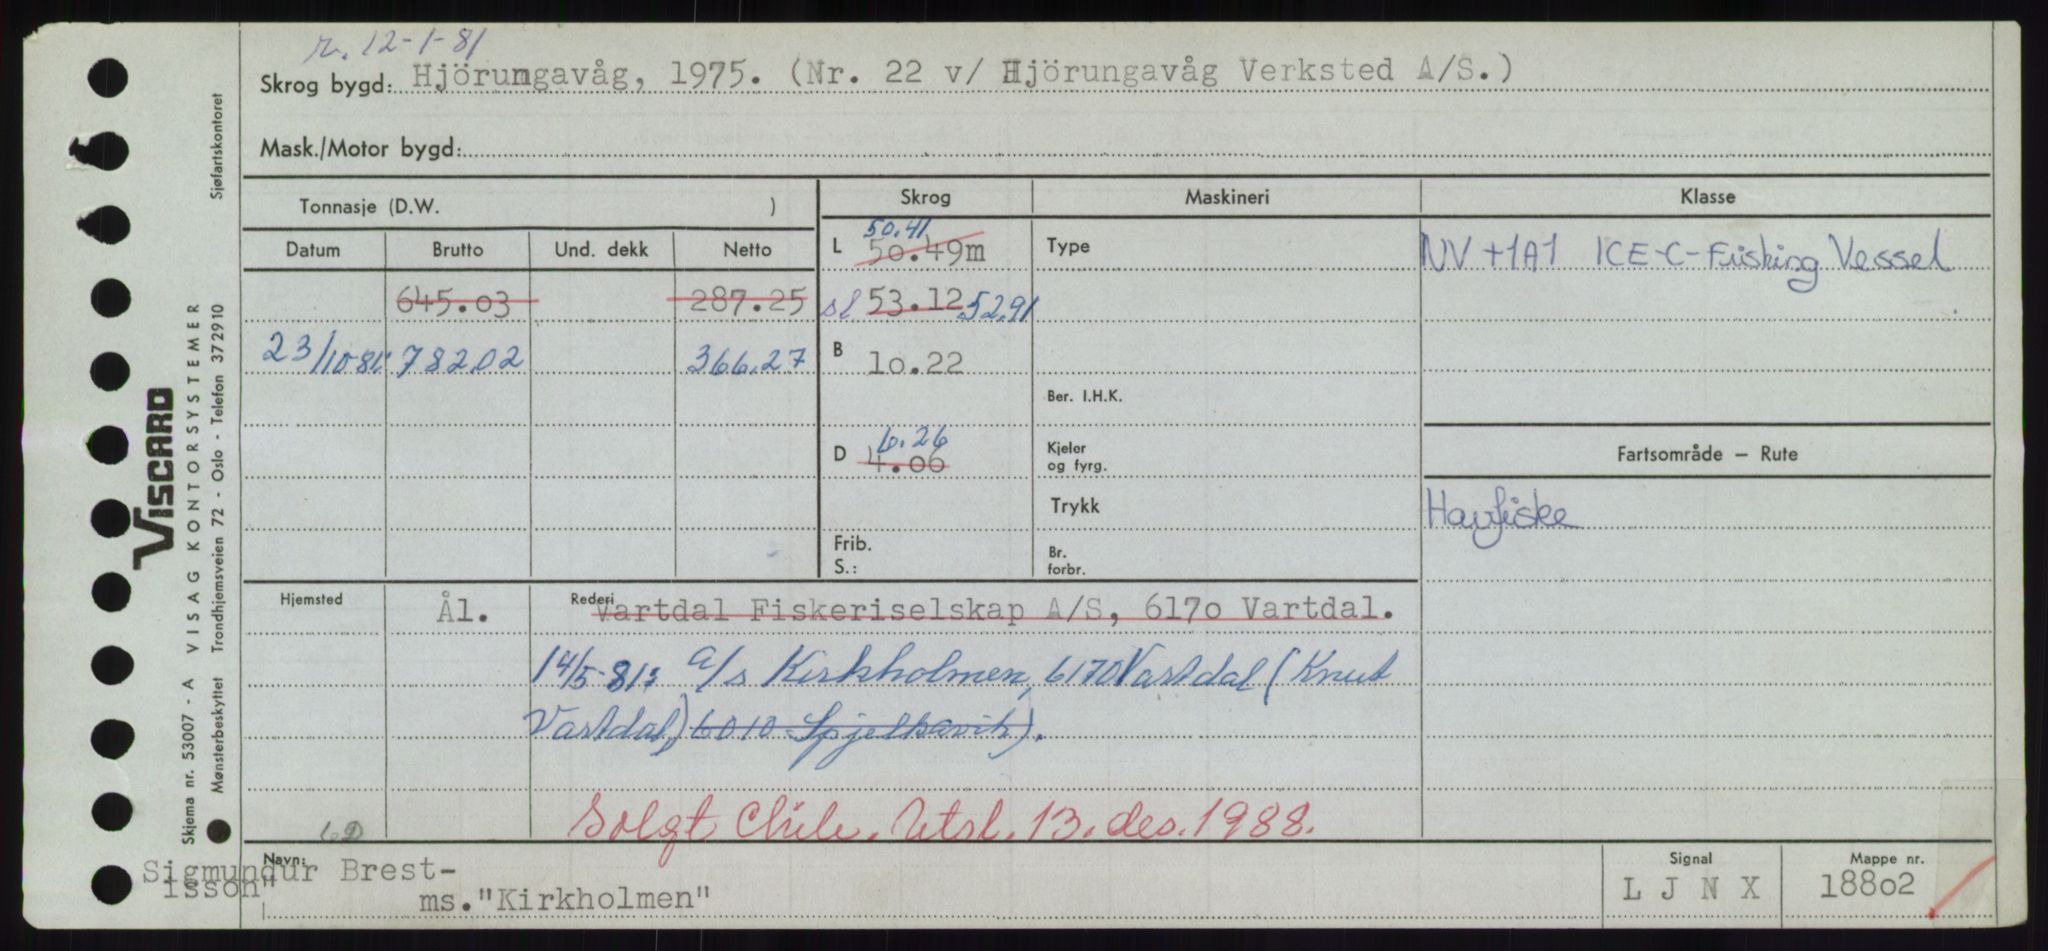 r. 12-1-81
Skrog bygd: Hjörungavåg, 1975. (Nr. 22 v/ Hjörungavåg Verksted A/S.)
Mask./Motor bygd:
Tonnasje (D.W. )
Skrog
Maskineri
Klasse
Datum
Brutto
Und. dekk
Netto
L 50.41
50.49m
Type
NV +1A1 ICE-C-Fishing Vessel
645.03
287.25
sl 53.12 52.91
23/10-81: 782.02
366.27
B 10.22
Ber. I.H.K.
D 6.26
4.06
Kjeler
og fyrg.
Fartsområde – Rute
Trykk
Havfiske
Frib.
S.:
Br.
forbr.
Hjemsted
Ål.
Rederi
Vartdal Fiskeriselskap A/S, 6170 Vartdal.
14/5-81: a/s Kirkholmen, 6170 Vartdal (Knut
Vartdal,) 6010 Spjelkavik).
Solgt Chile. Utsl. 13. des. 1988.
Navn:
Sigmundur Brest-
isson"
ms."Kirkholmen"
Signal
L J N X
Mappe nr.
18802
VISCARD
VISAG KONTORSYSTEMER
Skjema nr. 53007 - A
Trondhjemsveien 72 - Oslo - Telefon 372910
Mønsterbeskyttet
Sjøfartskontoret